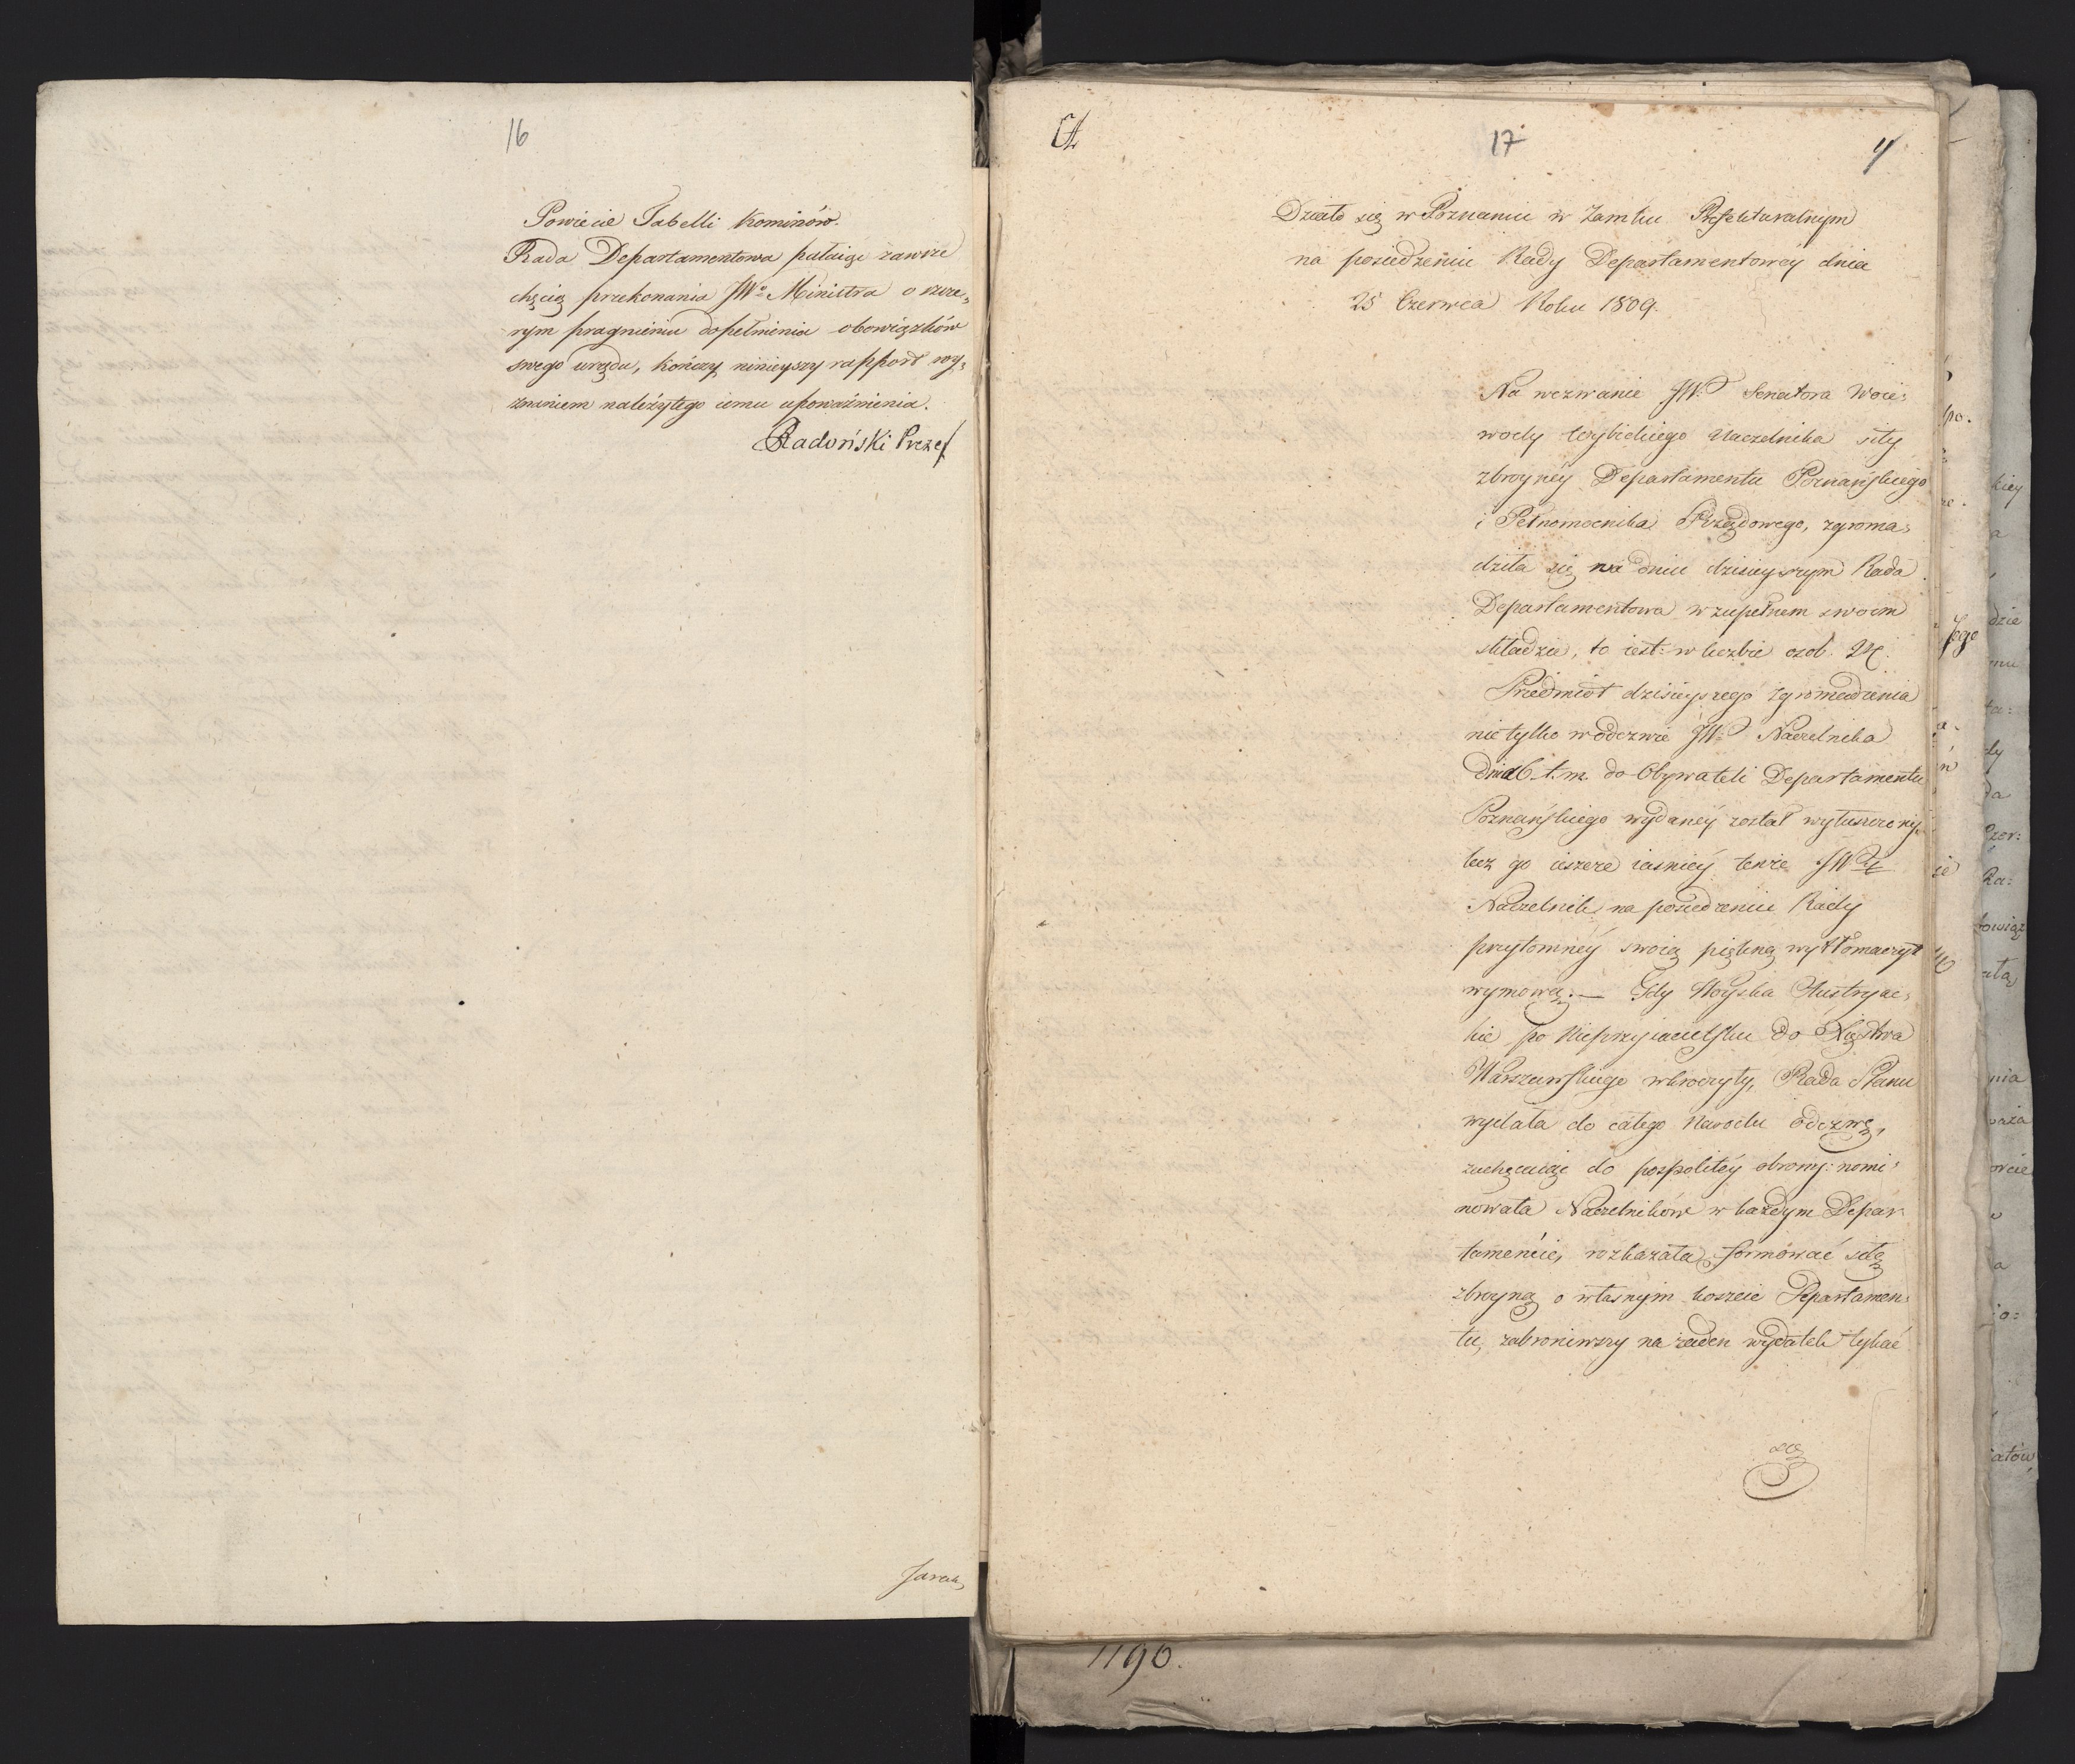 16
Powiecie Tabelli Kominów.
Rada Departamentowa pałaiąc zawsze
chęcią przekonania JWo Ministra o szcze,
rym pragnieniu dopełnienia obowiązków
swego urzędu, kończy ninieyszy rapport wy,
znaniem należytego iemu upoważnienia.
Radoński Prezes
Jarak
17
4
Działo się w Poznaniu w Zamku Prefekturalnym
na posiedzeniu Rady Departamentowéy dnia
25 Czerwca Roku 1809.
Na wezwanie JW. Senatora Woie,
wody Wybickiego Naczelnika siły
zbroynéy Departamentu Poznańskiego
i Pełnomocnika Rządowego, zgroma,
dziła się na dniu dzisieyszym Rada
Departamentowa w zupełnem swoim
składzie, to iest: w liczbie osob
Przedmiot dzisieyszego zgromadzenia
nie tylko w odezwie JW. Naczelnika
dnia 6. t. m. do Obywateli Departamentu
Poznańskiego wydanéy został wyłuszczony,
lecz go ieszcze iaśniéy tenże JW.
Naczelnik na posiedzeniu Rady
przytomnéy swoią piękną wytłomaczył
wymową. — Gdy Woyska Austryac,
kie po Nieprzyiacielsku do Xięstwa
Warszawskiego wkroczyły, Rada Stanu
wydała do całego Narodu odezwę,
zachęcaiąc do pospolitéy obrony: nomi,
nowała Naczelników w każdym Depar
tamencie, rozkazała formować siłę
zbroyną o własnym koszcie Departamen,
tu, zabroniwszy na żaden wydatek tykać
1190.